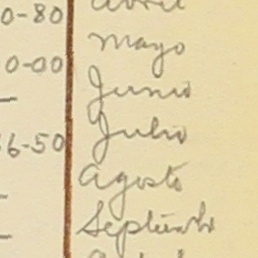 0-80 Abril
Mayo
0-00
Junio
Julio
6-50
Agosto
Septiembr